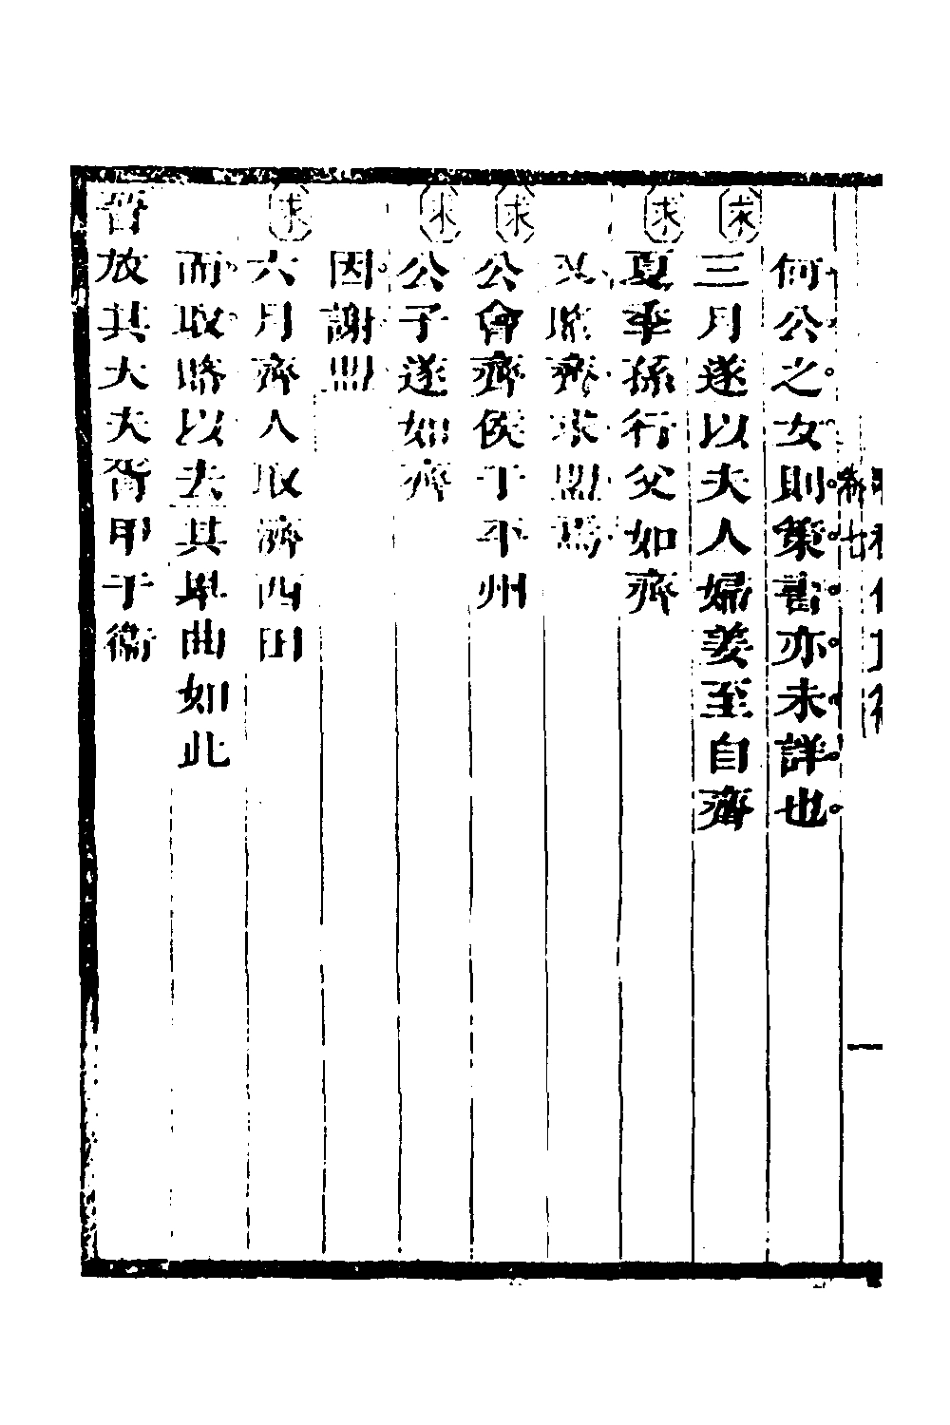 卷七
何公之女則策書亦未詳也
三月遂以夫人婦姜至自齊
求
夏季孫行父如齊
賂齊求盟焉
求
公會齊侯于平州
求
公子遂如齊
因謝盟
求
六月齊人取濟西田
而取賂以去其卑曲如此
晉放其大夫胥甲于衛